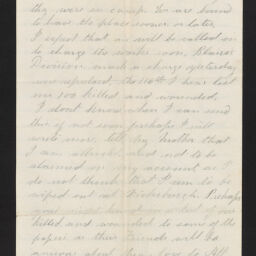 they were in camp. We are bound
to have the place sooner or later
I expect that we will be called on
to charge its works soon, Blairs
Division made a charge yesterday
was repulsed. the 116th I hear lost
me 100 killed and wounded.
I dont know when I can send
this if not soon perhaps I will
write more, tell my Mother that
I am allright and not to be
alarmed on my account as I
do not think that I am to be
wiped out at Vicksburgh. Perhaps
you
killed and wounded to some of the
papers as their friends will be
anxious about them love to All